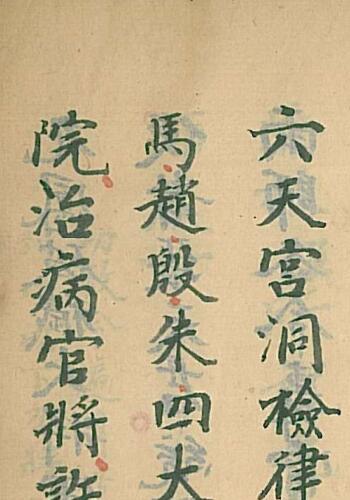 六天宮洞檢律
馬趙殷朱四大
院治病官將許